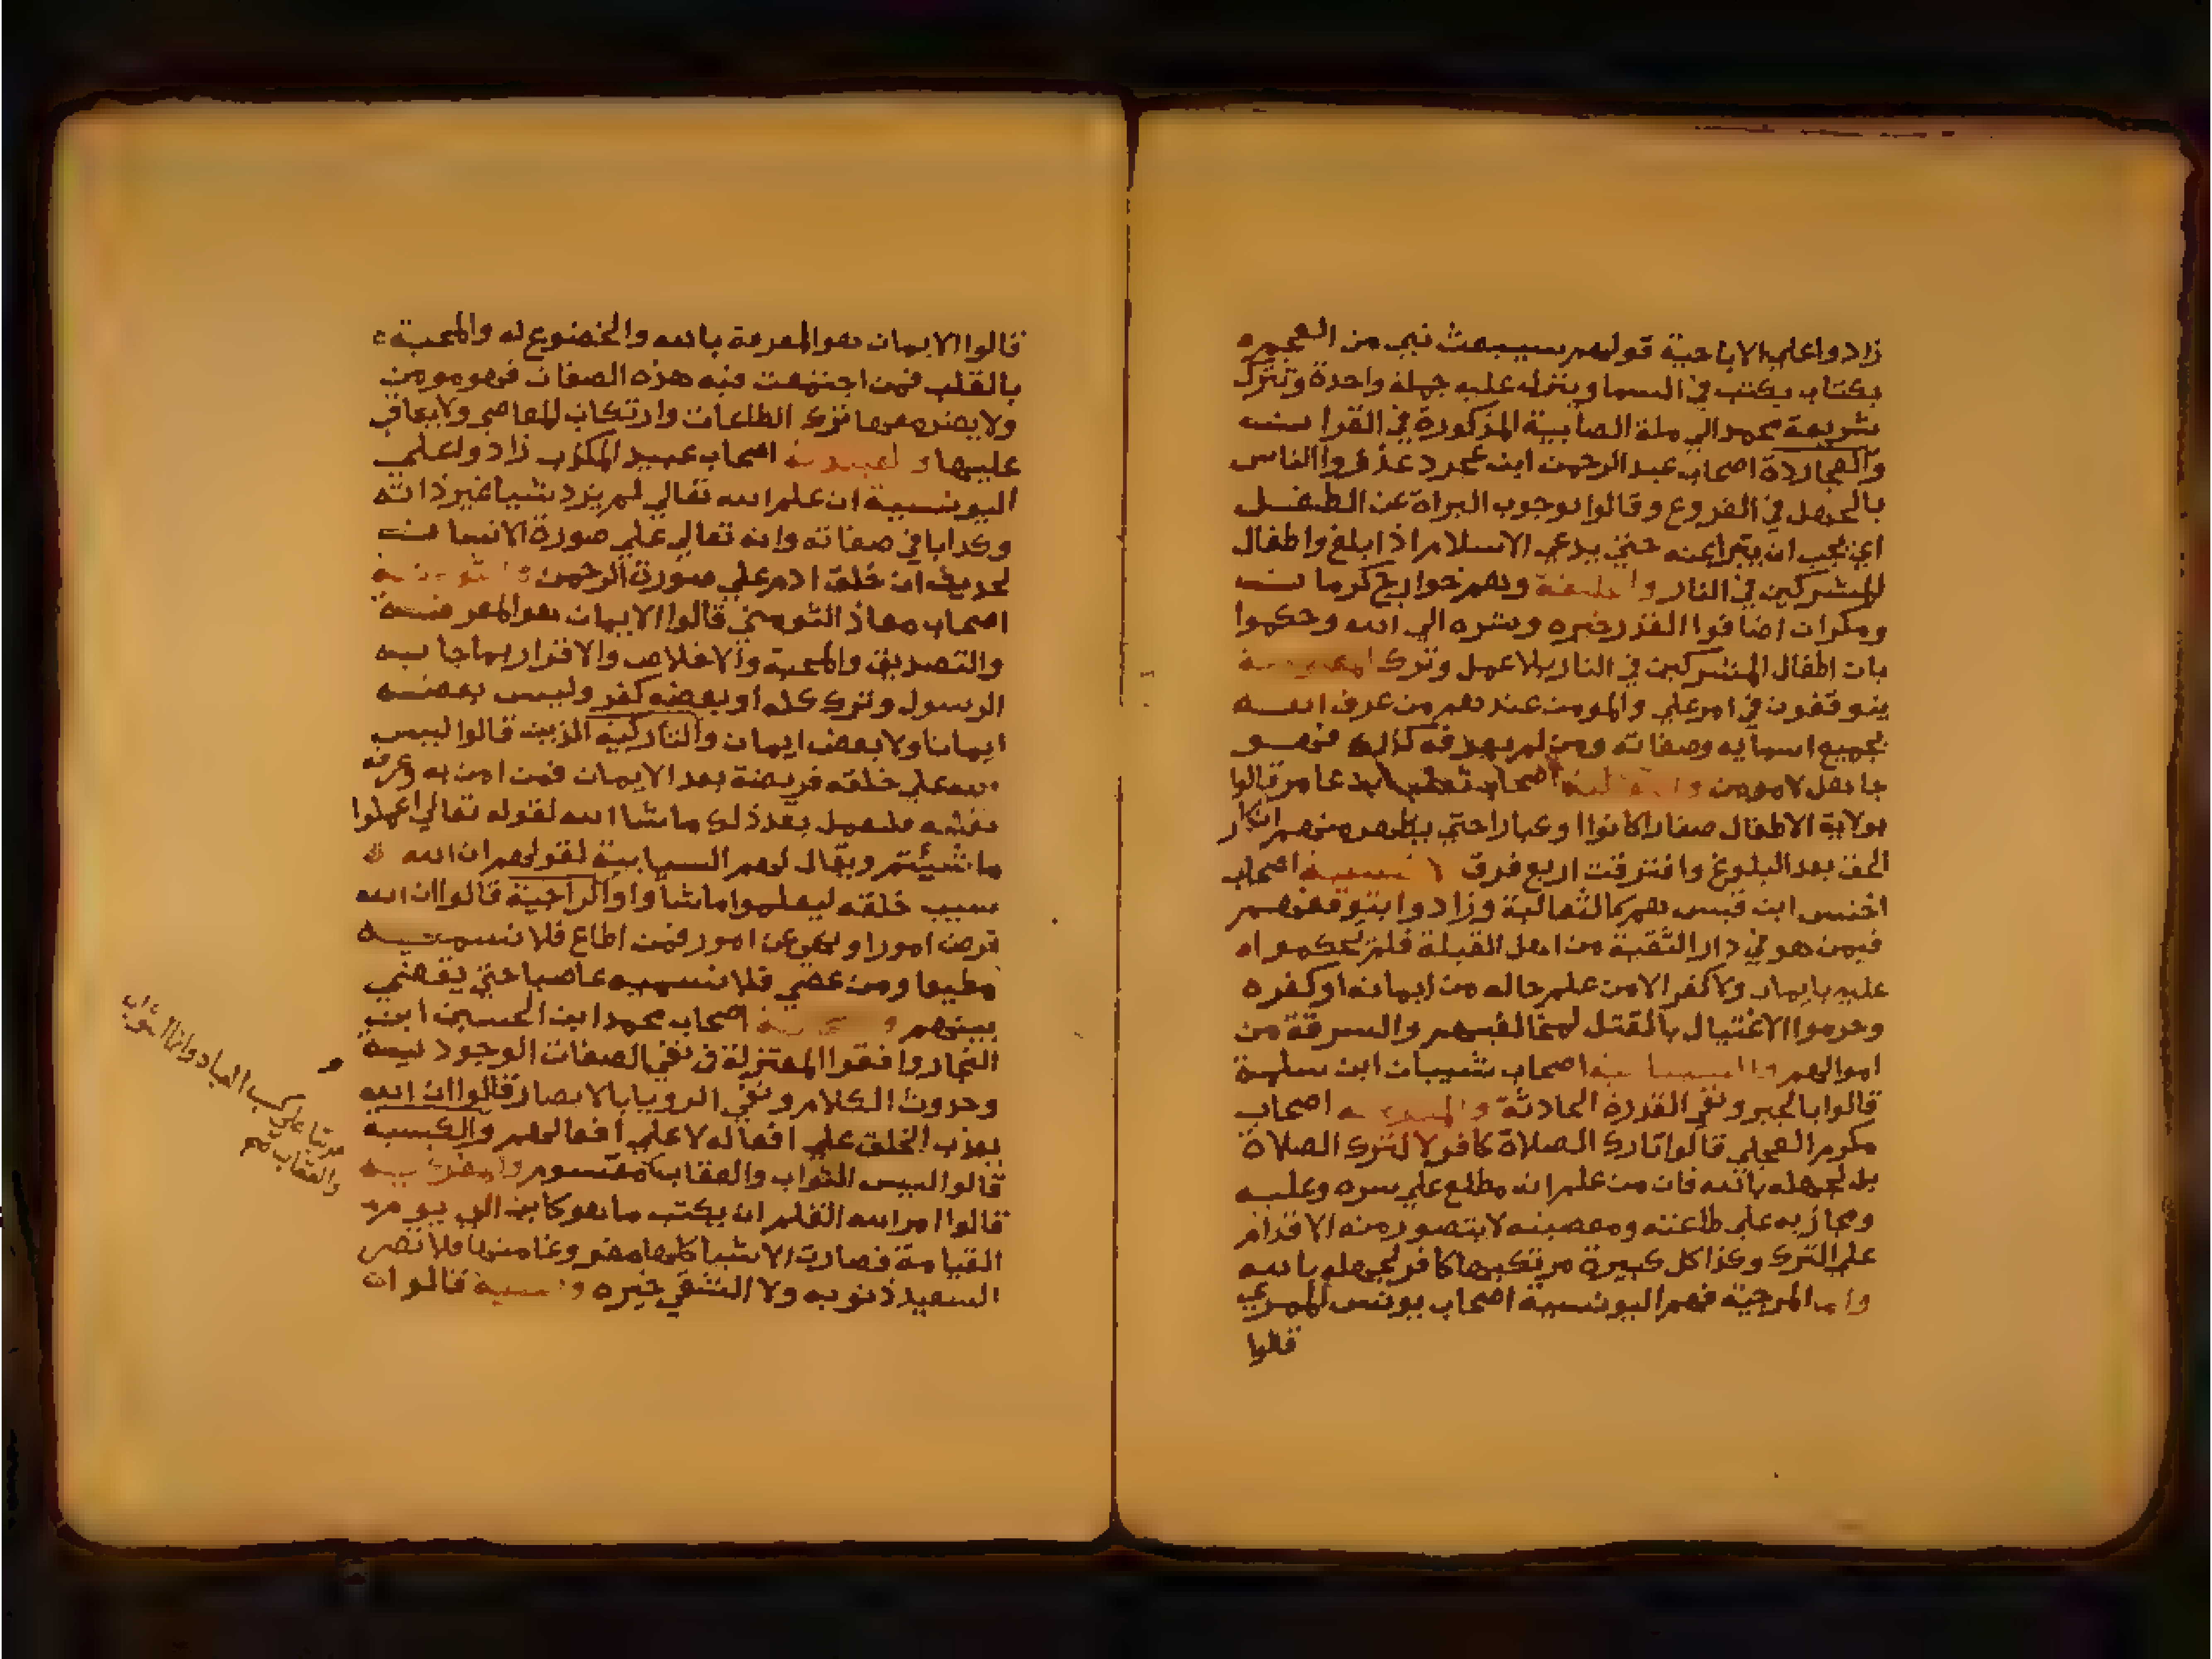 زادوا على الاباحية قولهم سيبعث نبي من العجم
بكتاب يكتب في السما وينزل عليه جملة واحدة وتترك
شريعة محمد الي ملة الصابية المذكورة في القران
والعجاردة اصحاب عبد الرحمن ابن عجرد عذروا الناس
بالجهل في الفروع وقالوا بوجوب البراة عن الطفل
اي يجب ان يتبرا عنه حتي يدعي الاسلام اذا بلغ واطفال
المشركين في النار وهم خوارج كرمان
ومكران اضافوا القدر خيره وشره الي الله وحكموا
بان اطفال المشركين في النار بلا عمل وترك
يتوقفون في امر علي والمومن عندهم من عرف الله
بجميع اسمايه وصفاته ومن لم يعرفه كذلك فهو
جاهل لا مومن اصحاب ثعلب بن عامر قالوا
بولاية الاطفال صغارا كانوا او كبارا حتي يظهر منهم انكار
الحق بعد البلوغ وافترقت اربع فرق اصحاب
اخنس ابن قيس هم كالثعالبة وزادوا بتوقفهم
فيمن هو في دار التقية من اهل القبلة فلم يحكموا
عليه بايمان ولا كفر الا من علم حاله من ايمانه او كفره
وحرموا الاغتيال بالقتل لمخالفيهم والسرقة من
اموالهم اصحاب شيبان ابن سلمة
قالوا بالجبر ونفي القدرة الحادثة اصحاب
مكرم العجلي قالوا تارك الصلاة كافر لا لترك الصلاة
بل لجهله بالله فان من علم انه مطلع علي سره وعلنه
ومجازيه علي طاعته ومعصيته لا يتصور منه الاقدام
علي الترك وكذا كل كبيرة مرتكبها كافر لجهله بالله
واما المرجئة فهم اليونسية اصحاب يونس النمري
قالوا
قالوا الايمان هو المعرفة بالله والخضوع له والمحبة
بالقلب فمن اجتمعت فيه هذه الصفات فهو مومن
ولا يضره معها ترك الطاعات وارتكاب المعاصي ولا يعاقب
عليها و اصحاب عبيد المكذب زادوا علي
اليونسية ان علم الله تعالي لم يزد شيا غير ذاته
وكذا باقي صفاته وانه تعالي علي صورة الانسان
لحديث ان خلق ادم علي صورة الرحمن
اصحاب معاذ التومني قالوا الايمان هو المعرفة
والتصديق والمحبة والاخلاص والاقرار بما جا به
الرسول وترك كله او بعضه كفر وليس بعضه
ايمانا ولا بعض ايمان والتاركية الذين قالوا ليس
لله علي خلقه فريضة بعد الايمان فمن امن به وعرفه
فليعمل بعد ذلك ما شا الله لقوله تعالي اعملوا
ما شيئتم ويقال لهم السبابية لقولهم ان الله
سيب خلقه ليعلموا ما شاوا والراجية قالوا ان الله
فرض امورا ونهي عن امور فمن اطاع فلا نسميه
مطيعا ومن عصي فلا نسميه عاصيا حتي يقضي
بينهم اصحاب محمد ابن الحسين ابن
النجار وافقوا المعتزلة في نفي الصفات الوجودية
وحدوث الكلام ونفي الرويا بالابصار قالوا ان الله
يعذب الخلق علي افعاله لا علي افعالهم والكسبية
قالوا ليس الثواب والعقاب مقسوم
قالوا امر الله القلم ان يكتب ما هو كاين الي يوم
القيامة فصارت الاشيا كلها مفروغا منها فلا تضر
السعيد ذنوبه ولا الشقي خيره قالوا ان
مرتبا علي كسب العباد وانما الثواب
والعقاب